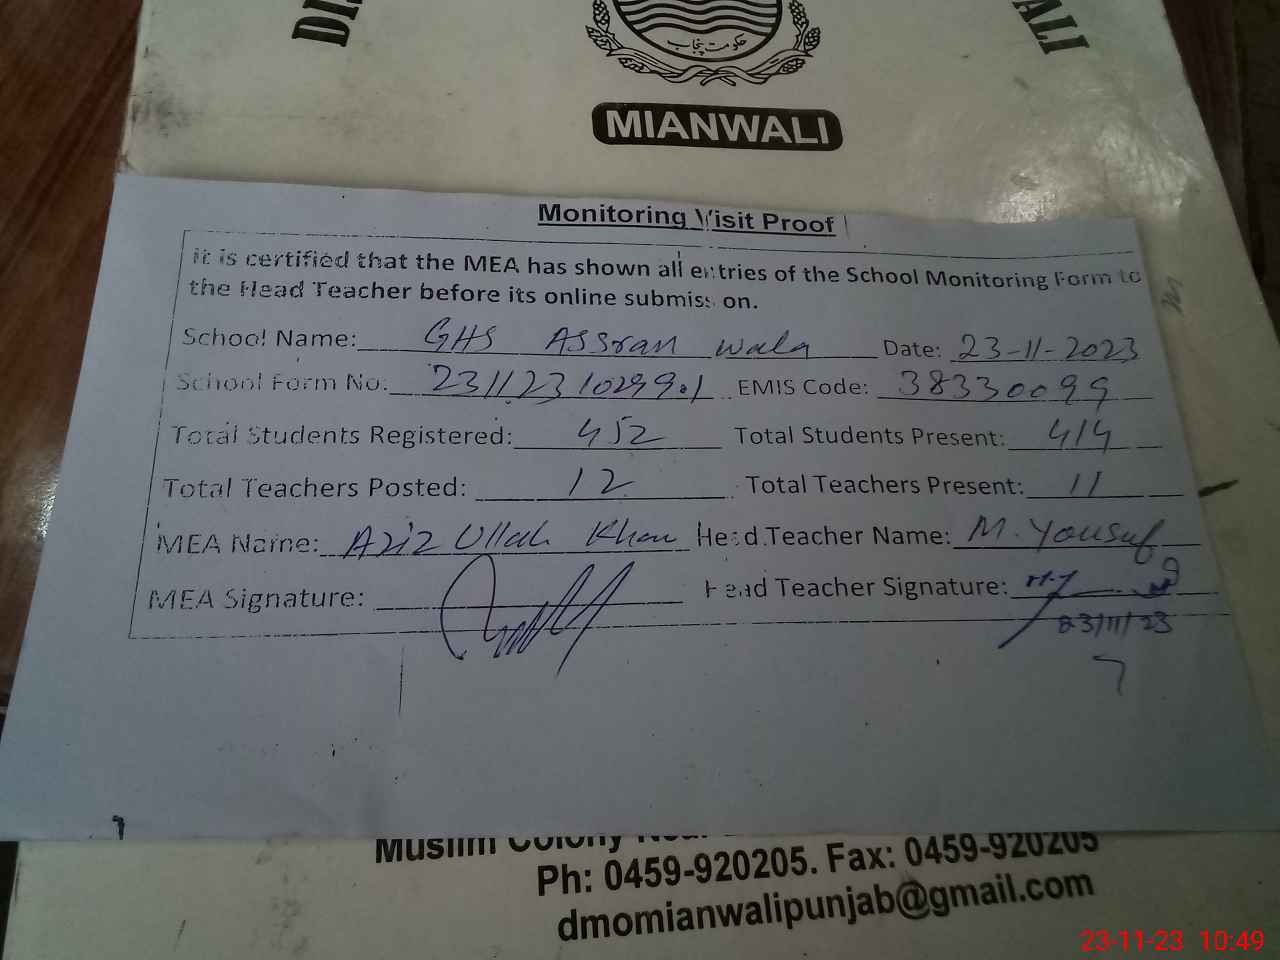 حکومت پنجاب
MIANWALI
Monitoring Visit Proof
It is certified that the MEA has shown all entries of the School Monitoring Form to
the Head Teacher before its online submission.
School Name: GHS Assran Wala Date: 23-11-2023
School Form No: 23112310299.1 EMIS Code: 38330099
Total Students Registered: 452 Total Students Present: 414
Total Teachers Posted: 12 Total Teachers Present: 11
MEA Name: Aziz Ullah Khan Head Teacher Name: M. Yousuf
MEA Signature: Head Teacher Signature:
23/11/23
Muslim Colony
Ph: 0459-920205. Fax: 0459-920205
dmomianwalipunjab@gmail.com
23-11-23 10:49